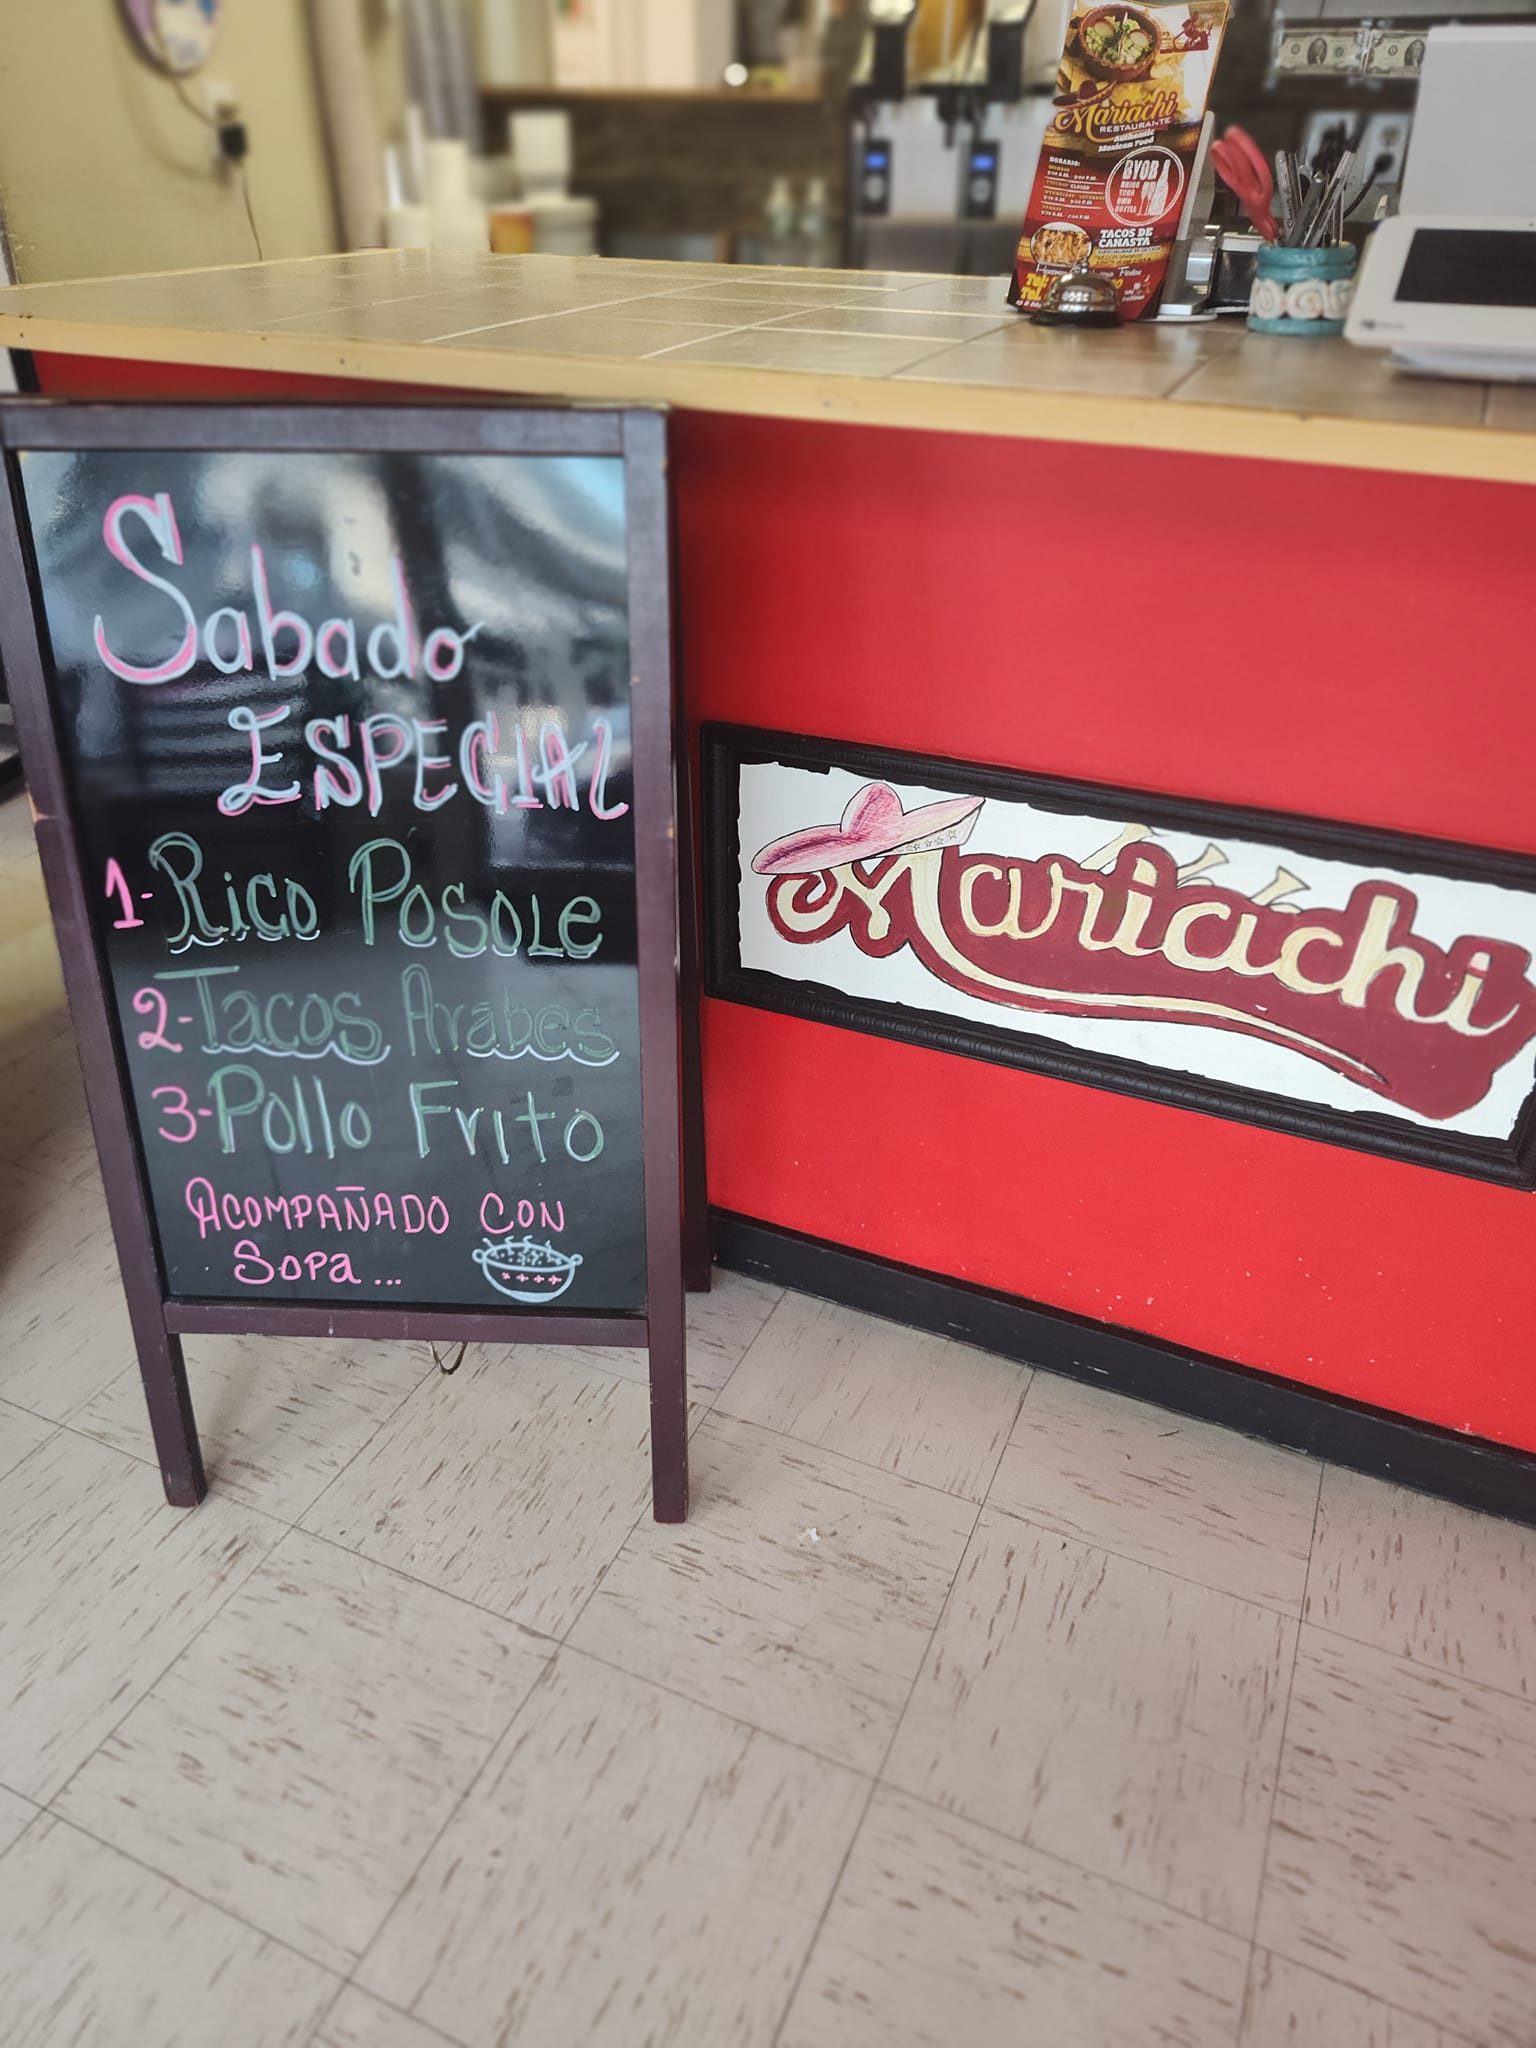 Sabado
ESPECIAL
1-Rico Pósole
2-Tacos Arabes
3-Pollo Frito
ACOMPAÑADO CON
Sopa...
Mariachi
Mariachi
RESTAURANTE
Authentic
Mexican Food
HORARIO:
BYOB
BRING
YOUR
OWN
BOTTLE
TACOS DE
CANASTA